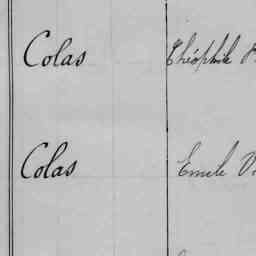 Colas Théophile
Colas Emile